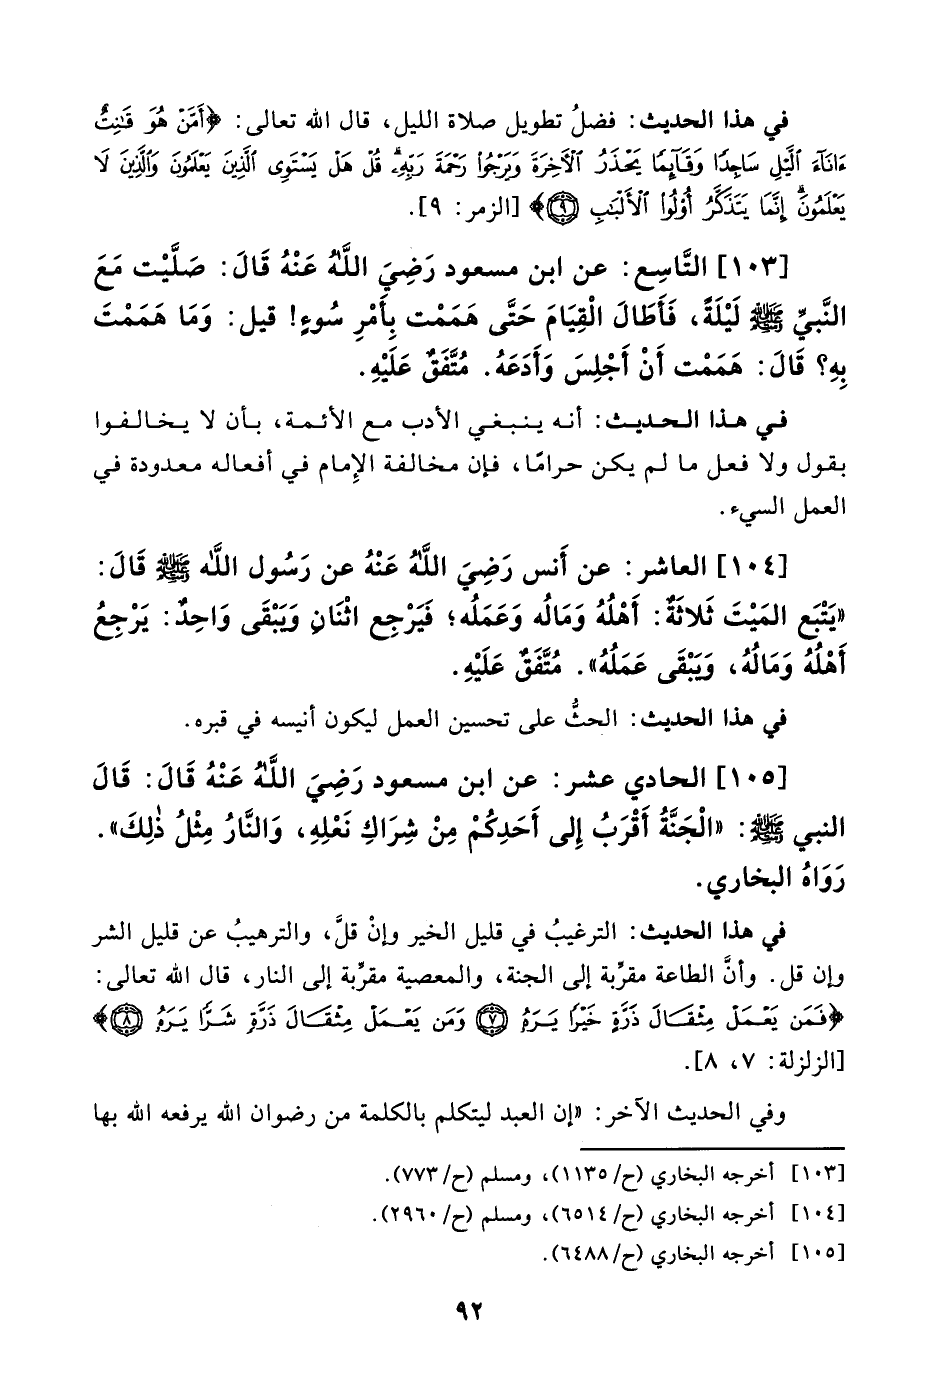 في هذا الحديث: فضلُ تطويل صلاة الليل، قال الله تعالى: ﴿أَمَّنْ هُوَ قَٰنِتٌ
ءَانَآءَ ٱلَّيْلِ سَاجِدًا وَقَآئِمًا يَحْذَرُ ٱلْأَخِرَةَ وَيَرْجُوا۟ رَحْمَةَ رَبِّهِۦ ۗ قُلْ هَلْ يَسْتَوِى ٱلَّذِينَ يَعْلَمُونَ وَٱلَّذِينَ لَا
يَعْلَمُونَ ۗ إِنَّمَا يَتَذَكَّرُ أُو۟لُوا۟ ٱلْأَلْبَٰبِ ۝٩﴾ [الزمر: ٩].
[١٠٣] التَّاسِع: عن ابن مسعود رَضِيَ اللَّهُ عَنْهُ قَالَ: صَلَّيْت مَعَ
النَّبيِّ ﷺ لَيْلَةً، فَأَطَالَ الْقِيَامَ حَتَّى هَمَمْت بِأَمْرِ سُوءٍ! قيل: وَمَا هَمَمْتَ
بِهِ؟ قَالَ: هَمَمْت أَنْ أَجْلِسَ وَأَدَعَهُ. مُتَّفَقٌ عَلَيْهِ.
في هذا الحديث: أنه ينبغي الأدب مع الأئمة، بأن لا يخالفوا
بقول ولا فعل ما لم يكن حرامًا، فإن مخالفة الإمام في أفعاله معدودة في
العمل السيء.
[١٠٤] العاشر: عن أَنس رَضِيَ اللَّهُ عَنْهُ عن رَسُول اللَّه ﷺ قَالَ:
«يَتْبَع المَيْتَ ثَلاثَةٌ: أَهْلُهُ وَمَالُه وَعَمَلُه؛ فَيَرْجِع اثْنَانِ وَيَبْقَى وَاحِدٌ: يَرْجِعُ
أَهْلُهُ وَمَالُهُ، وَيَبْقَى عَمَلُهُ». مُتَّفَقٌ عَلَيْهِ.
في هذا الحديث: الحثُّ على تحسين العمل ليكون أنيسه في قبره.
[١٠٥] الحادي عشر: عن ابن مسعود رَضِيَ اللَّهُ عَنْهُ قَالَ: قَالَ
النبي ﷺ: «الْجَنَّةُ أَقْرَبُ إِلى أَحَدِكُمْ مِنْ شِرَاكِ نَعْلِهِ، وَالنَّارُ مِثْلُ ذٰلِكَ».
رَوَاهُ البخاري.
في هذا الحديث: الترغيبُ في قليل الخير وإنْ قلَّ، والترهيبُ عن قليل الشر
وإن قل. وأنَّ الطاعة مقرِّبة إلى الجنة، والمعصية مقرِّبة إلى النار، قال الله تعالى:
﴿فَمَن يَعْمَلْ مِثْقَالَ ذَرَّةٍ خَيْرًا يَرَهُۥ ۝٧ وَمَن يَعْمَلْ مِثْقَالَ ذَرَّةٍ شَرًّا يَرَهُۥ ۝٨﴾
[الزلزلة: ٧، ٨].
وفي الحديث الآخر: «إن العبد ليتكلم بالكلمة من رضوان الله يرفعه الله بها
[١٠٣] أخرجه البخاري (ح/١١٣٥)، ومسلم (ح/٧٧٣).
[١٠٤] أخرجه البخاري (ح/٦٥١٤)، ومسلم (ح/٢٩٦٠).
[١٠٥] أخرجه البخاري (ح/٦٤٨٨).
٩٢